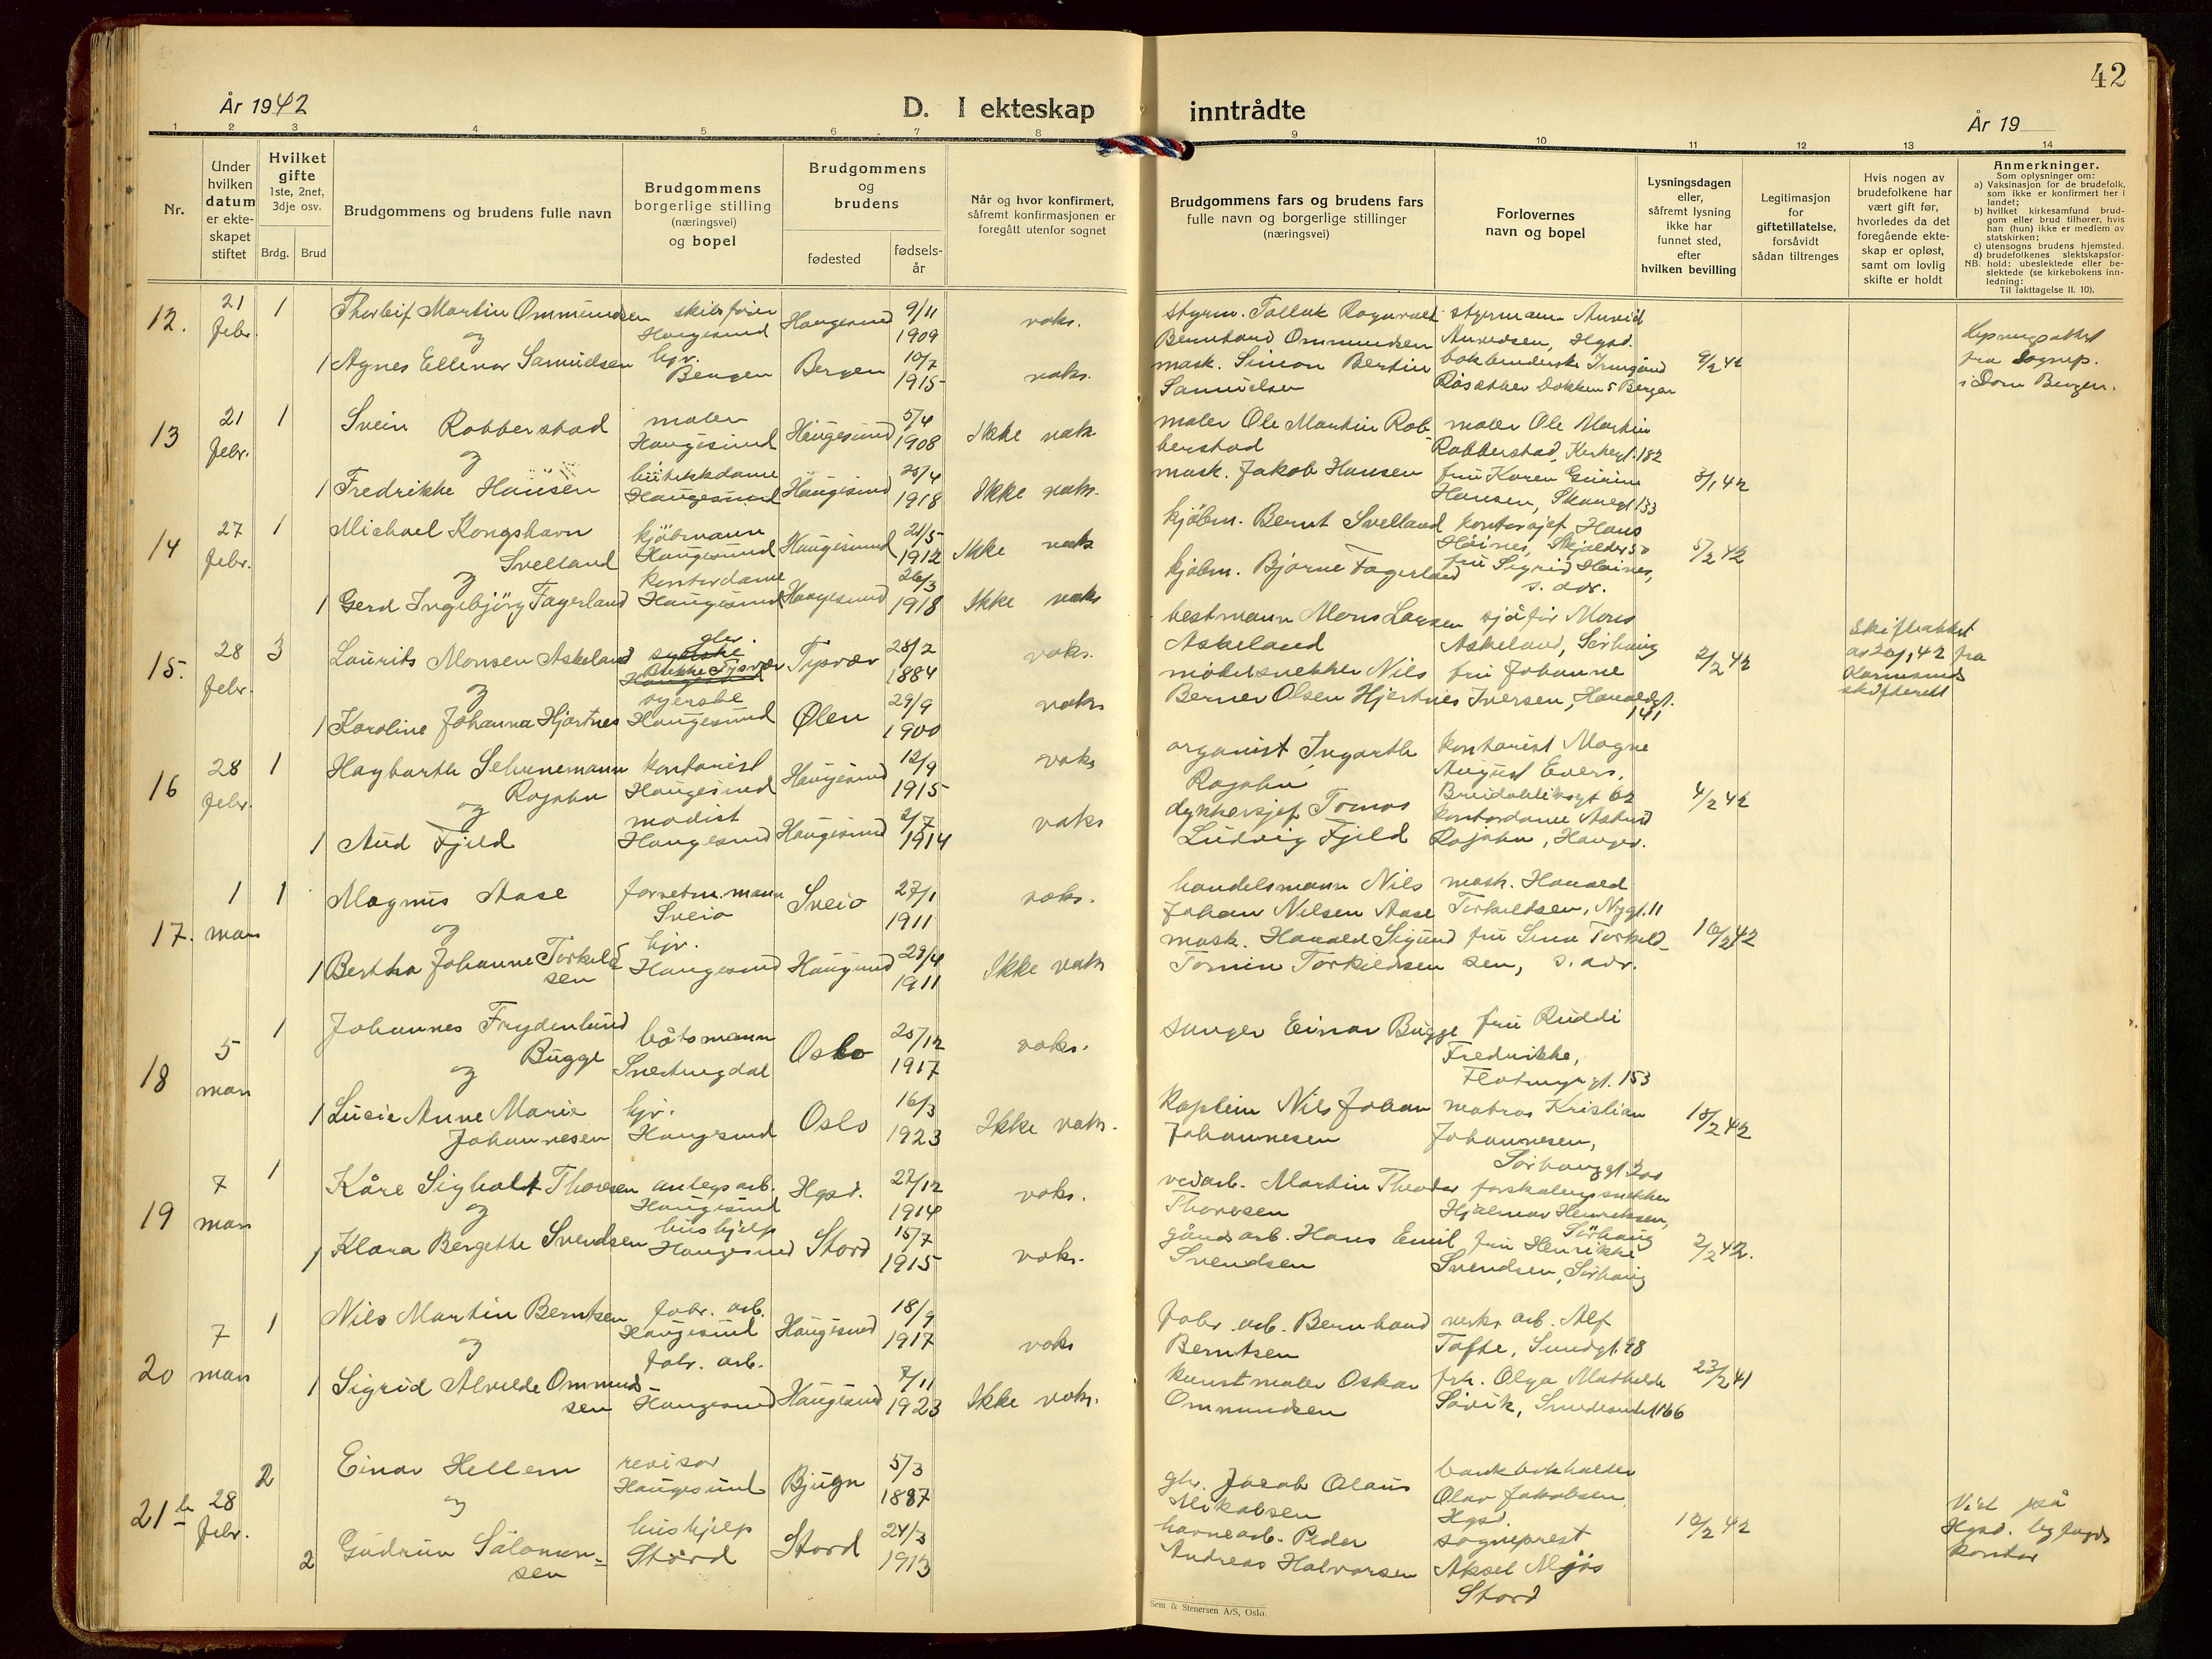 42
År 1942
D. I ekteskap
inntrådte
År 19
1 2 3 4 5 6 7 8 9 10 11 12 13 14
Nr.
Under hvilken datum er ekteskapet stiftet
Hvilket gifte
1ste, 2net, 3dje osv.
Brdg. Brud
Brudgommens og brudens fulle navn
Brudgommens borgerlige stilling (næringsvei) og bopel
Brudgommens og brudens
fødested
fødselsår
Når og hvor konfirmert, såfremt konfirmasjonen er foregått utenfor sognet
Brudgommens fars og brudens fars fulle navn og borgerlige stillinger (næringsvei)
Forlovernes navn og bopel
Lysningsdagen eller, såfremt lysning ikke har funnet sted, efter hvilken bevilling
Legitimasjon for giftetillatelse, forsåvidt sådan tiltrenges
Hvis nogen av brudefolkene har vært gift før, hvorledes da det foregående ekteskap er opløst, samt om lovlig skifte er holdt
Anmerkninger.
Som oplysninger om:
a) Vaksinasjon for de brudefolk, som ikke er konfirmert her i landet;
b) hvilket kirkesamfund brudgom eller brud tilhører, hvis han (hun) ikke er medlem av statskirken;
c) utensogns brudens hjemsted.
d) brudefolkenes slektskapsforhold: ubeslektede eller beslektede (se kirkebokens innledning:
NB.
Til iakttagelse II. 10).
12. 21 febr. 1 Thorleif Martin Ommundsen skibsfører Haugesund Haugesund 9/11 1909 vaks.
styrm. Tollak Ragnvald Bernhard Ommundsen
styrmann Arvid Arvedsen, Hgsd.
og
1 Agnes Ellenor Samuelsen hjv. Bergen Bergen 10/7 1915 vaks.
mask. Simon Bertin Samuelsen
bokbinderske Irmgard Røsæther Dokken 5 Bergen
9/2 42
lysningsattest fra Sognep. i Dom Bergen.
13 21 febr. 1 Svein Robberstad maler Haugesund Haugesund 5/4 1908 Ikke vak
maler Ole Martin Robberstad
maler Ole Martin Robberstad, Kirkegt. 182
og
1 Fredrikke Hansen butikkdame Haugesund Haugesund 25/4 1918 Ikke vaks.
mask. Jakob Hansen
fru Karen Gurine Hansen, Skaregt 133
3/1 42
14 27 febr. 1 Michael Kongshavn Svelland kjöbmann Haugesund Haugesund 21/5 1912 Ikke vak
kjøbm. Bernt Svelland
kontorsjef Hans Høines, Skjolder 50
og
1 Gerd Ingebjörg Fagerland kontordame Haugesund Haugesund 26/3 1918 Ikke vaks
kjøbm. Bjarne Fagerland
fru Sigrid Høines, s. adr.
5/2 42
15. 28 febr. 3 Laurits Monsen Askeland Bokke Tysvær Haugesund Tysvær 28/2 1884 vaks.
bestmann Mons Larsen Askeland
sjåfør Mons Askeland, Sørhaug
og
1 Karoline Johanna Hjortnes syerske Haugesund Ølen 29/9 1900 vaks
møbelsnekker Nils Berner Olsen Hjertnes
fru Johanne Iversen, Haraldsgt. 141
2/2 42
Skifteattest av 20/1 42 fra Karmsunds skifterett
16 28 febr. 1 Hagbarth Schunemann Rojahn kontorist Haugesund Haugesund 12/9 1915 vaks
organist Ingarth Rojahn
kontorist Magne August Evers, Breidablikgt 62
og
1 Aud Fjeld modist Haugesund Haugesund 2/7 1914 vaks
dykkersjef Tomas Ludvig Fjeld
kontordame Astrid Rojahn, Hauges.
4/2 42
17. 1 mars 1 Magnus Aase forretn. mann Sveio Sveio 27/1 1911 vaks.
handelsmann Nils Johan Nilsen Aase
mask. Harald Torkildsen, Nygt. 11
og
1 Bertha Johanne Torkildsen hjv. Haugesund Haugesund 29/4 1911 Ikke vaks
mask. Harald Sigurd Tomin Torkildsen
fru Lina Torkildsen, s. adr.
10/2 42
18 5 mars 1 Johannes Frydenlund Bugge båtsmann Snertingdal Oslo 25/12 1917 vaks.
sanger Einar Bugge
fru Ruddi Fredrikke, Flotmyrgt. 153
og
1 Lucie Anne Marie Johannesen hjv. Haugesund Oslo 16/3 1923 Ikke vaks.
kaptein Nils Johan Johannesen
matros Kristian Johannesen, Sørhauggt. 200
18/2 42
19 7 mars 1 Kåre Sigholt Thoresen anlegsarb. Haugesund Hgsd. 22/12 1914 vaks.
vedarb. Martin Theodor Thoresen
forskalingssnekker Hjalmar Henriksen, Sörhaug
og
1 Klara Bergette Svendsen hushjelp Haugesund Stord 15/7 1915 vaks.
gårdsarb. Hans Emil Svendsen
fru Henrikke Svendsen, Sørhaug
2/2 42.
20 7 mars 1 Nils Martin Berntsen fabr. arb. Haugesund Haugesund 18/9 1917 vaks
fabr. arb. Bernhard Berntsen
verks arb. Alf Tofte, Sundgt. 98
og
1 Sigrid Alvilde Ommundsen fabr. arb. Haugesund Haugesund 7/11 1923 Ikke vaks.
kunstmaler Oskar Ommundsen
frk. Olga Mathilde Søvik, Smedasundet 166
23/2 41
21 b 28 febr. 2 Einar Hellem revisor Haugesund Bjugn 5/3 1887
gbr. Jacob Olaus Mikalsen
bankbokholder Olav Jakobsen, Hgsd.
og
2 Gudrun Salomonsen hushjelp Stord Stord 24/3 1913
havnearb. Peder Andreas Halvorsen
sogneprest Aksel Mjøs Stord
10/2 42
Viet på Hgsd. byfogds kontor
Sem & Stenersen A/S, Oslo.